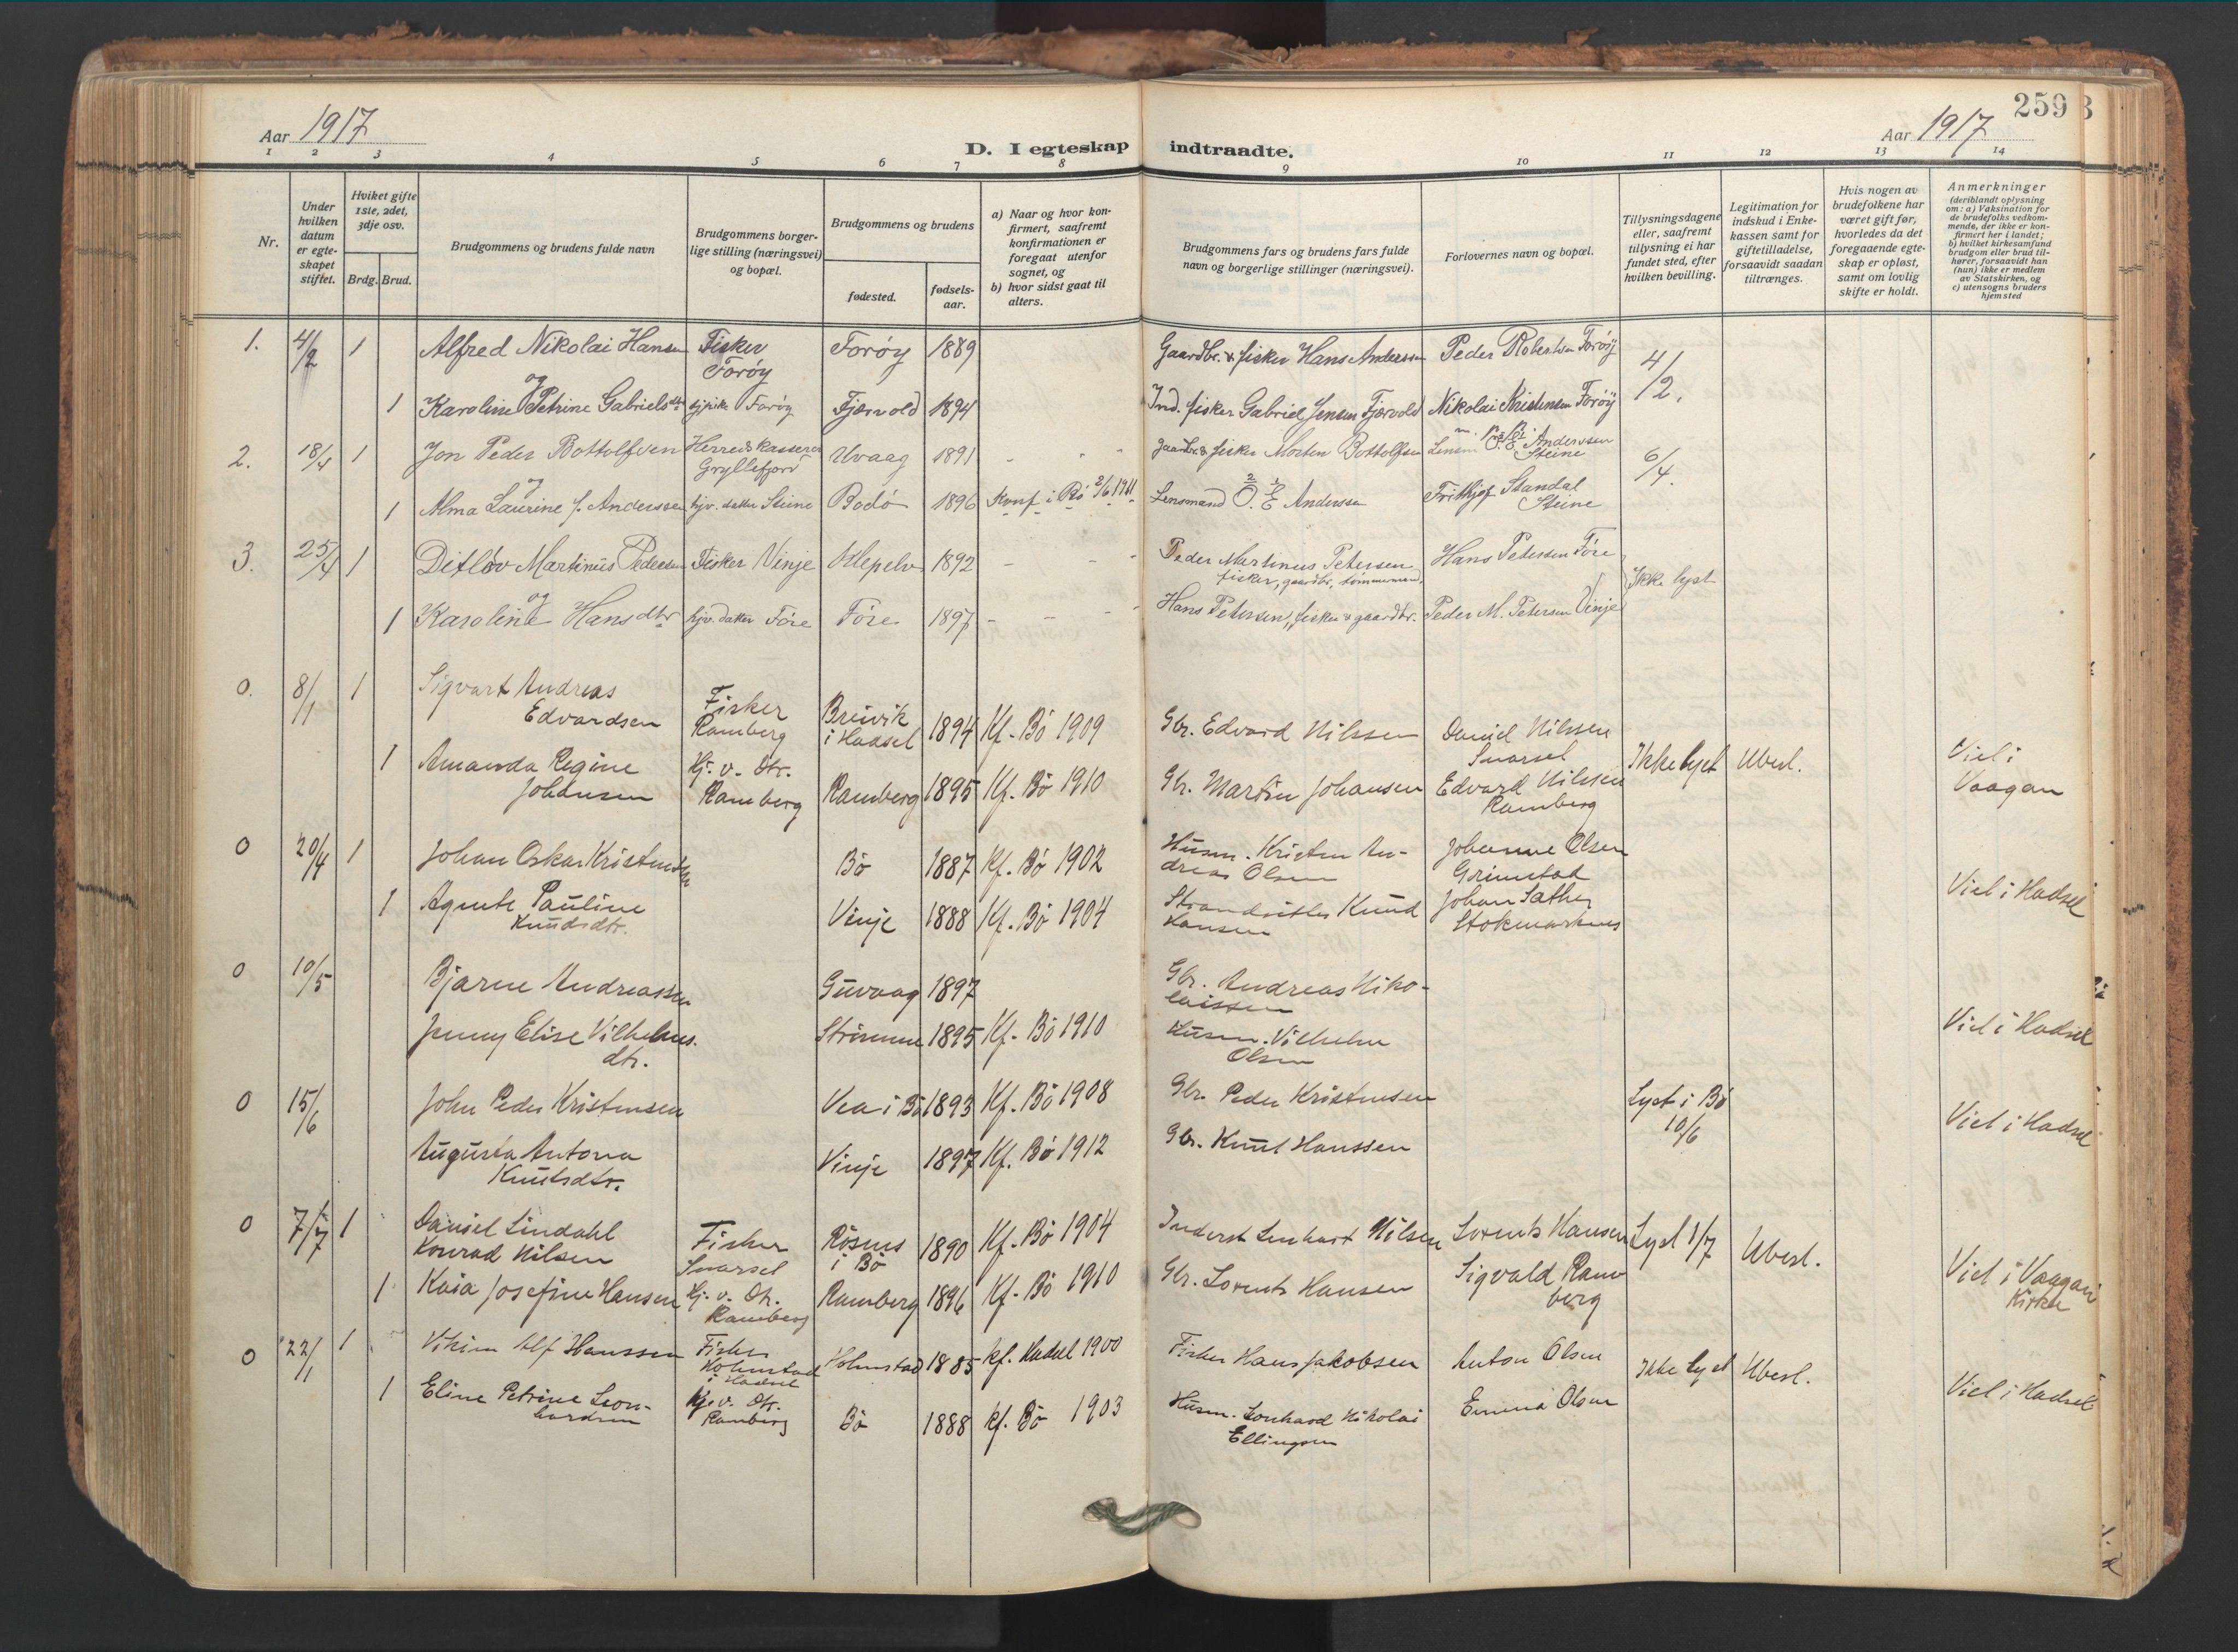 259
Aar 1917
D. I egteskap indtraadte.
Aar 1917
1 2 3 4 5 6 7 8 9 10 11 12 13 14
Nr.
Under hvilken datum er egte-skapet stiftet.
Hviket gifte 1ste, 2det, 3dje osv.
Brdg. Brud.
Brudgommens og brudens fulde navn
Brudgommens borger-lige stilling (næringsvei) og bopæl.
Brudgommens og brudens
fødested.
fødsels-aar.
a) Naar og hvor kon-firmert, saafremt konfirmationen er foregaat utenfor sognet, og
b) hvor sidst gaat til alters.
Brudgommens fars og brudens fars fulde navn og borgerlige stillinger (næringsvei).
Forlovernes navn og bopæl.
Tillysningsdagene eller, saafremt tillysning ei har fundet sted, efter hvilken bevilling.
Legitimation for indskud i Enke-kassen samt for giftetilladelse, forsaavidt saadan tiltrænges.
Hvis nogen av brudefolkene har været gift før, hvorledes da det foregaaende egte-skap er opløst, samt om lovlig skifte er holdt.
Anmerkninger (deriblandt oplysning om: a) Vaksination for de brudefolks vedkom-mende, der ikke er kon-firmert her i landet; b) hvilket kirkesamfund brudgom eller brud til-hører, forsaavidt han (hun) ikke er medlem av Statskirken, og c) utensogns bruders hjemsted
1. 4/2 1 Alfred Nikolai Hansen Fisker Forøy Forøy 1889 Gaardbr. & fisker Hans Anderssen Peder Robertsen Forøy 4/2.
og
1 Karoline Petrine Gabrielsdtr tjpike Forøy Fjærvold 1894 Ind. fisker Gabriel Jensen Fjærvold Nikolai Kristensen Forøy
2. 18/4 1 Jon Peder Bottolfsen Herredskasserer Gryllefjord Uvaag 1891 Gaardbr. & fisker Morten Bottolfsen Lensm. O. E. Anderssen Steine 6/4.
og
1 Alma Laurine f. Anderssen hjv. datter Steine Bodø 1896 Konf i Bø 2/6 1911. Lensmand O. E Anderssen Frithjof Standal Steine
3. 25/4 1 Ditløv Martinus Pedersen Fisker Vinje 1892 Peder Martinus Petersen fisker, gaardbr, tømmermand Hans Petersen Føre Ikke lyst
og
1 Karoline Hansdtr hjv. datter Føre Føre 1897 Hans Petersen, fisker & gaardbr. Peder M. Petersen Vinje
0. 8/1 1 Sigvart Andreas Edvardsen Fisker Ramberg Breivik i Hadsel 1894 Kf. Bö 1909 Gbr. Edvard Nilssen Daniel Nilssen Svarsel Ikke lyst Ubesl. Viet i Vaagan
1 Amanda Regine Johansen Hj. v. Dtr. Ramberg Ramberg 1895 Kf. Bö 1910 Gbr. Martin Johansen Edvard Nilssen Ramberg
0 20/4 1 Johan Oskar Kristensen Bö 1887 Kf. Bö 1902 Husm. Kristen Andreas Olsen Grimstad Viet i Hadsel
1 Agnete Pauline Knudsdtr. Vinje 1888 Kf. Bö 1904 Strandsitter Knud Hansen Johan Sather Stokmarknes
0 10/5 Bjarne Andreassen Guvaag 1897 Gbr. Andreas Niko-laissen Viet i Hadsel
Jenny Elise Vilhelms-dtr. Strömme 1895 Kf. Bö 1910 Husm. Vilhelm Olsen
0 15/6 John Peder Kristensen Vea i Bö 1893 Kf. Bö 1908 Gbr. Peder Kristensen Lyst i Bö 10/6 Viet i Hadsel
Augusta Antona Knutsdtr. Vinje 1897 Kf. Bö 1912 Gbr. Knut Hanssen
0 7/7 1 Daniel Lindahl Konrad Nilsen Fisker Svarsel Rösnes i Bö 1890 Kf. Bö 1904 Inderst Lenhart Nilsen Lorents Hansen Lyst 1/7 Ubesl. Viet i Vaagan Kirke
1 Kaia Josefine Hansen Hj. v. Dtr. Ramberg Ramberg 1896 Kf. Bö 1910 Gbr. Lorents Hansen Sigvald Ramberg
0 22/1 1 Alf Hanssen Fisker Holmstad i Hadsel Holmstad 1885 kf. Hadsel 1900 Fisker Hans Jakobsen Anton Olsen Ikke lyst Ubesl. Viet i Hadsel
1 Eline Petrine Leon-hardsen Hj. v. Dtr. Ramberg Bö 1888 kf. Bö 1903 Husm. Lonhard Nikolai Ellingsen Emma Olsen